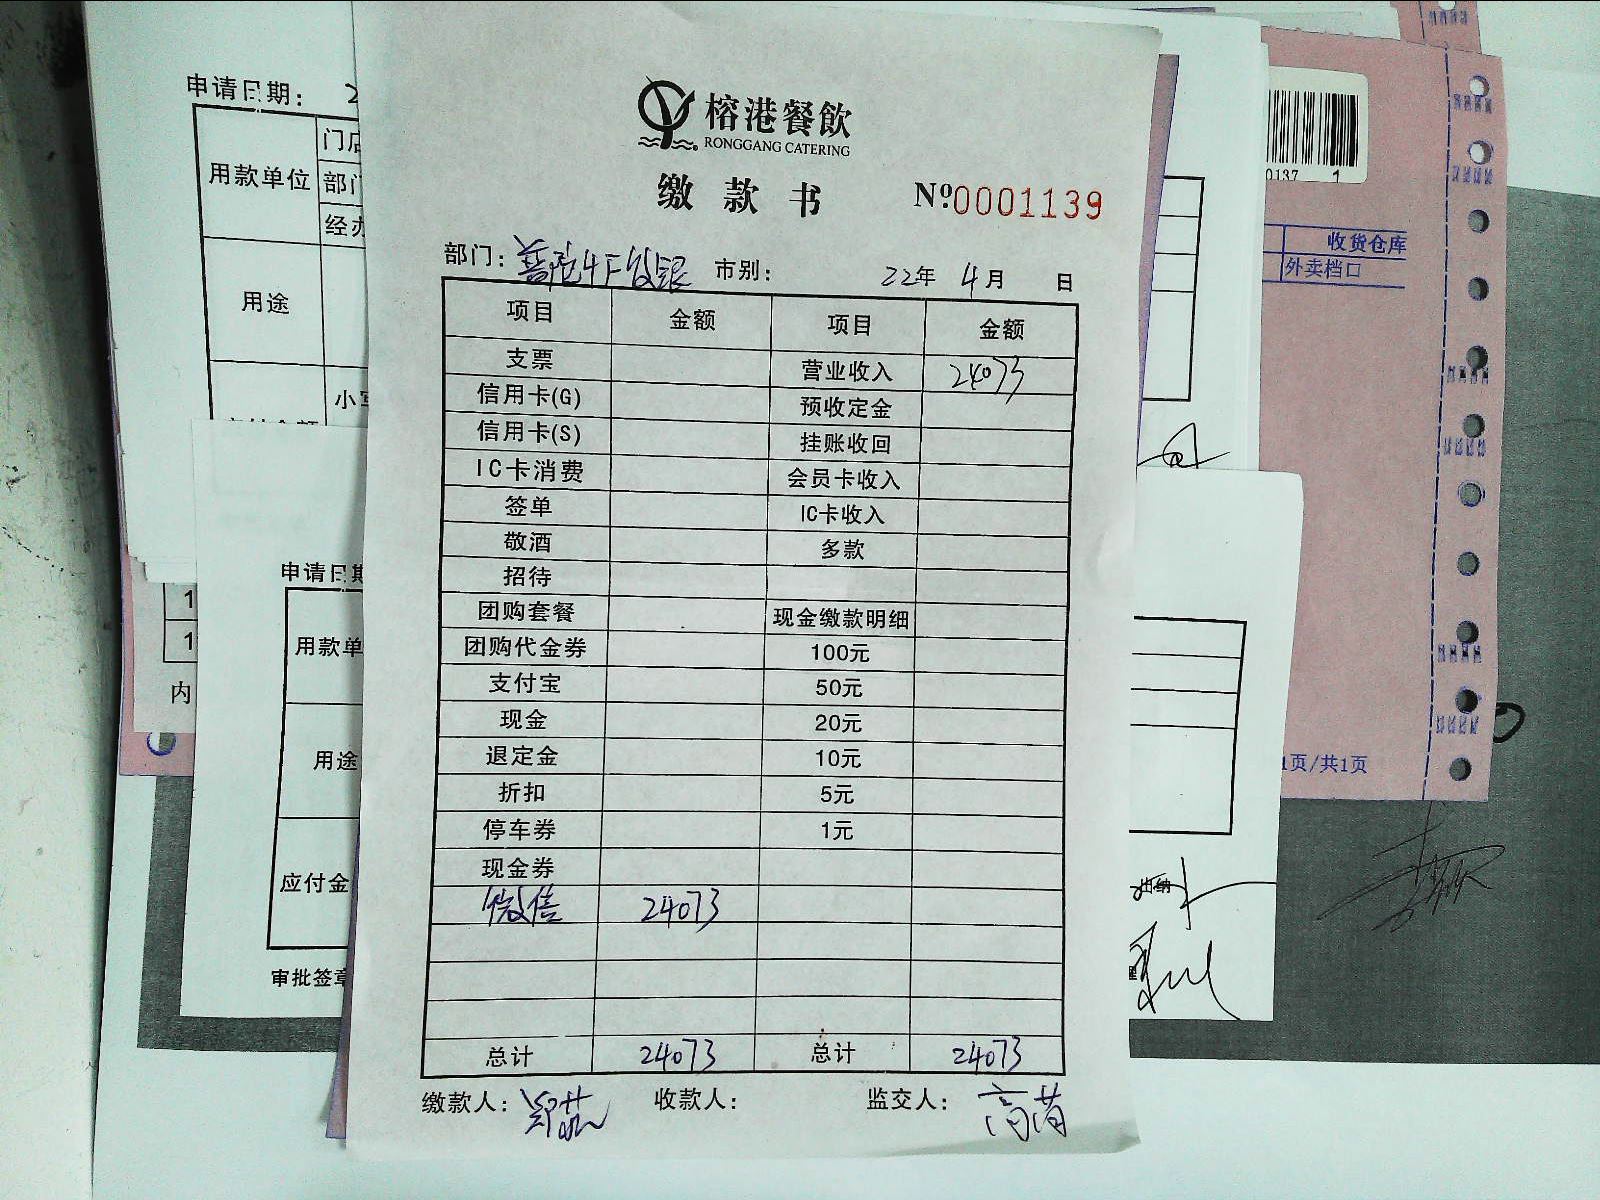 榕港餐飲
RONGGANG CATERING
缴款书 №0001139
部门: 市别: 22年 4月 日
项目 金额 项目 金额
支票 营业收入 24073
信用卡(G) 预收定金
信用卡(S) 挂账收回
IC卡消费 会员卡收入
签单 IC卡收入
敬酒 多款
招待
团购套餐 现金缴款明细
团购代金券 100元
支付宝 50元
现金 20元
退定金 10元
折扣 5元
停车券 1元
现金券
微信 24073
总计 24073 总计 24073
缴款人: 收款人: 监交人:
申请日期: 2
用款单位 门店
部门
经办
用途
小写
申请日期
用款单
用途
应付金
审批签章
1
1
内
0137 1
收货仓库
外卖档口
1页/共1页
出纳